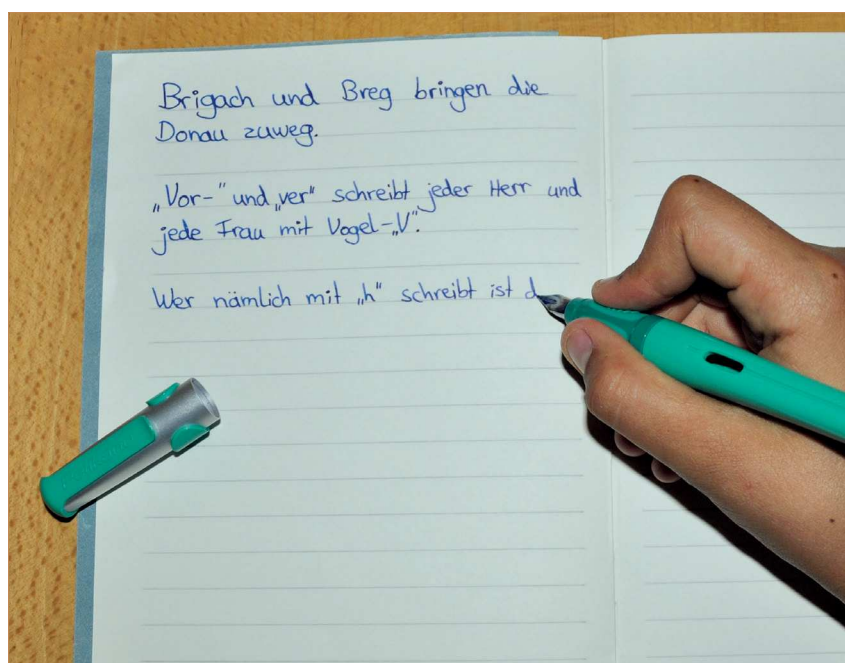 Brigach und Breg bringen die
Donau zuweg.
„Vor-" und „ver" schreibt jeder Herr und
jede Frau mit Vogel-„V".
Wer nämlich mit „h" schreibt ist d